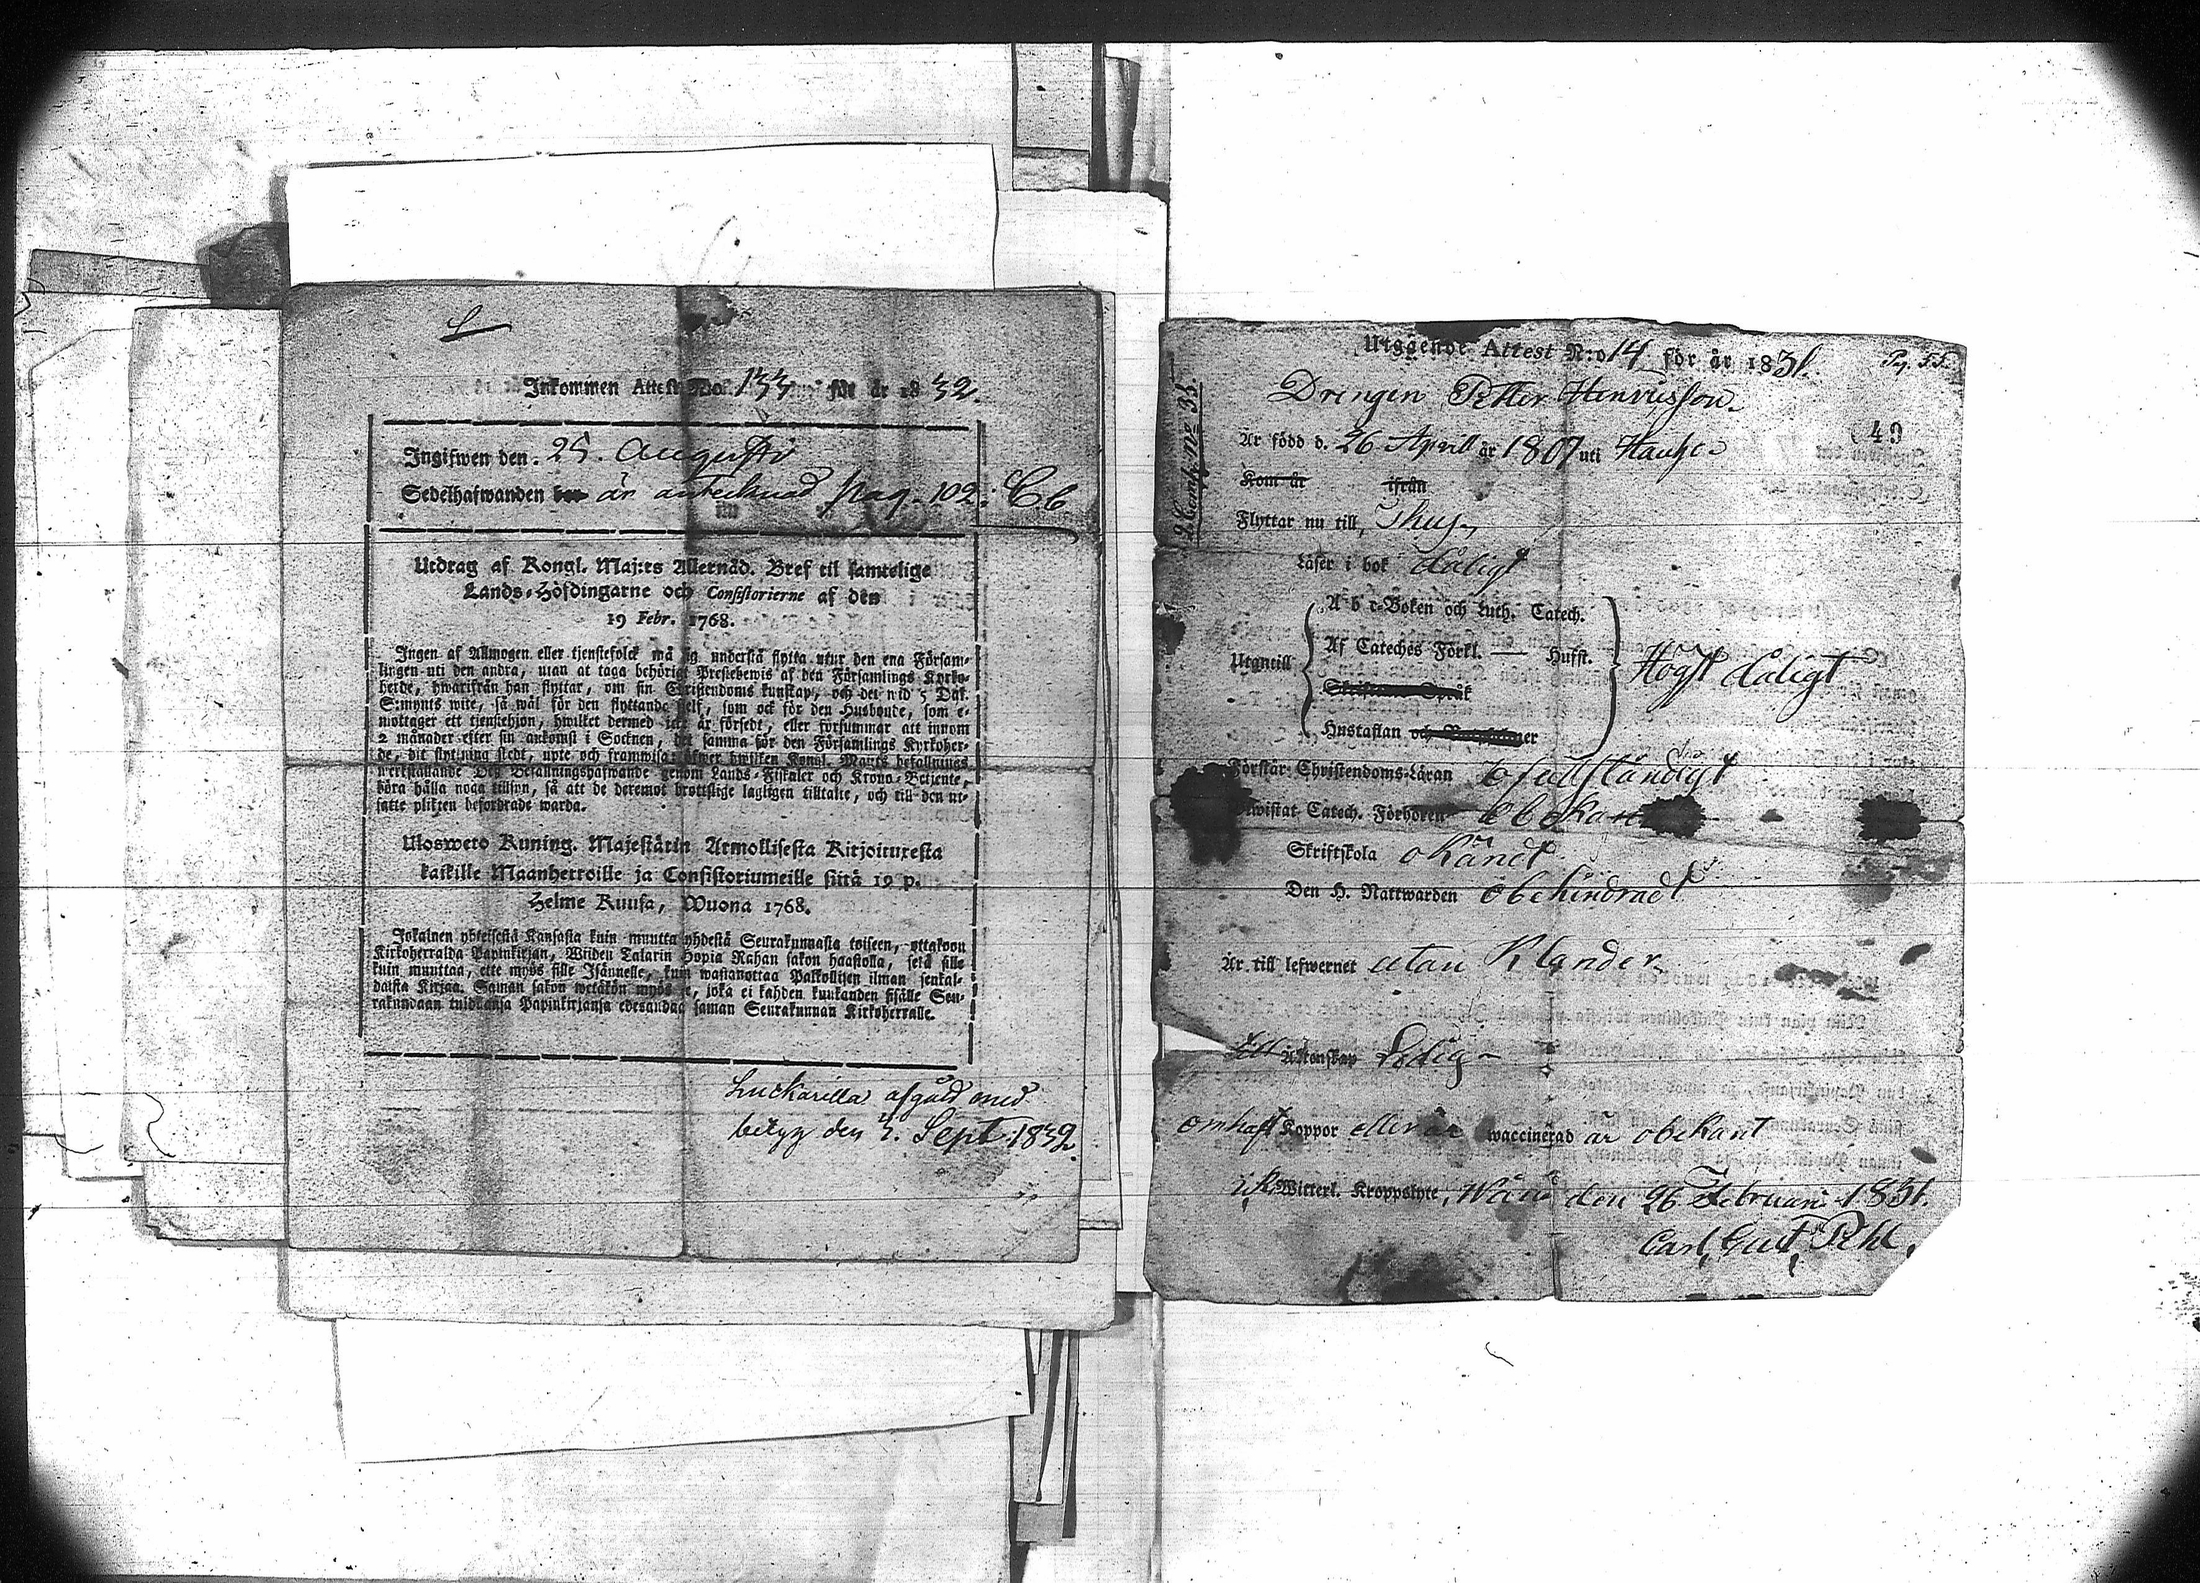 Inkommen Attest No. 133 för år 1832.
Ingifwen den 25. Augusti
Sedelhafwanden är antecknad pag. 102. C.6.
Utdrag af Kongl. Maj:ts Allernåd. Bref til samtelige
Lands-Höfdingarne och Consistorierne af den
19 Febr. 1768.
Ingen af Allmogen eller tjenstefolck må sig understå flytta utur den ena Försam-
lingen uti den andra, utan at taga behörigt Prestebewis af den Församlings Kyrko-
herde, hwarifrån han flyttar, om sin Christendoms kunskap, och det wid 5 Dal.
S:mynts wite, så wäl för den flyttande self, som ock för den Husbonde, som e-
mottager ett tjenstehjon, hwilket dermed icke är försedt, eller försummar att innom
2 månader efter sin ankomst i Socknen, det samma för den Församlings Kyrkoher-
de, dit flyttning skedt, upte och framwisa: öfwer hwilken Kongl. Maj:ts befallnings
werkställande Dess Befallningshafwande genom Lands-Fiskaler och Krono-Betjente,
böra hålla noga tillsyn, så att de deremot brottslige lagligen tilltalte, och till den ut-
satte plikten befordrade warda.
Uloswето Kuning. Majestätin Armollisesta Kirjoituxesta
kaikille Maanherroille ja Consistoriumeille siitä 19 p.
Helme Kuusa, Wuona 1768.
Jokainen yhteisestä Kansasta kuin muutta yhdestä Seurakunnasta toiseen, ottakoon
Kirkoherralda Papinkirjan, Wiiden Talarin Hopia Rahan sakon haastolla, sekä sille
kuin muuttaa, ette myös sille Isännelle, kuin wastanottaa Palkollisen ilman senkal-
daista Kirjaa. Saman sakon wetäkön myös se, joka ei kahden kuukauden sisälle Seu-
rakundaan tuldуansa Papinkirjansa edesandaa saman Seurakunnan Kirkoherralle.
Luckarilla afgåld med
betyg den 3. Sept. 1832.
Utgående Attest N:o 14 för år 1831. Pag. 55.
Drengen Petter Henricsson
49
Är född d. 26 April år 1807 uti Hauho
Kom år ifrån
Flyttar nu till,
Läser i bok dåligt
A b c-Boken och Luth. Catech.
Af Cateches Förkl. — Husst.
Utantill
Högst dåligt
Språk
Hustaflan och
Förstår Christendoms-Läran ofullständigt
Bewistat Catech. Förhören
Skriftskola okändt
Den H. Nattwarden obehindrad
Är till lefwernet utan Klander
Till Äktenskap Ledig
om haft Koppor eller är waccinerad är obekant
Witterl. Kroppslyte, den 26 Februari 1831.
Carl Gust.